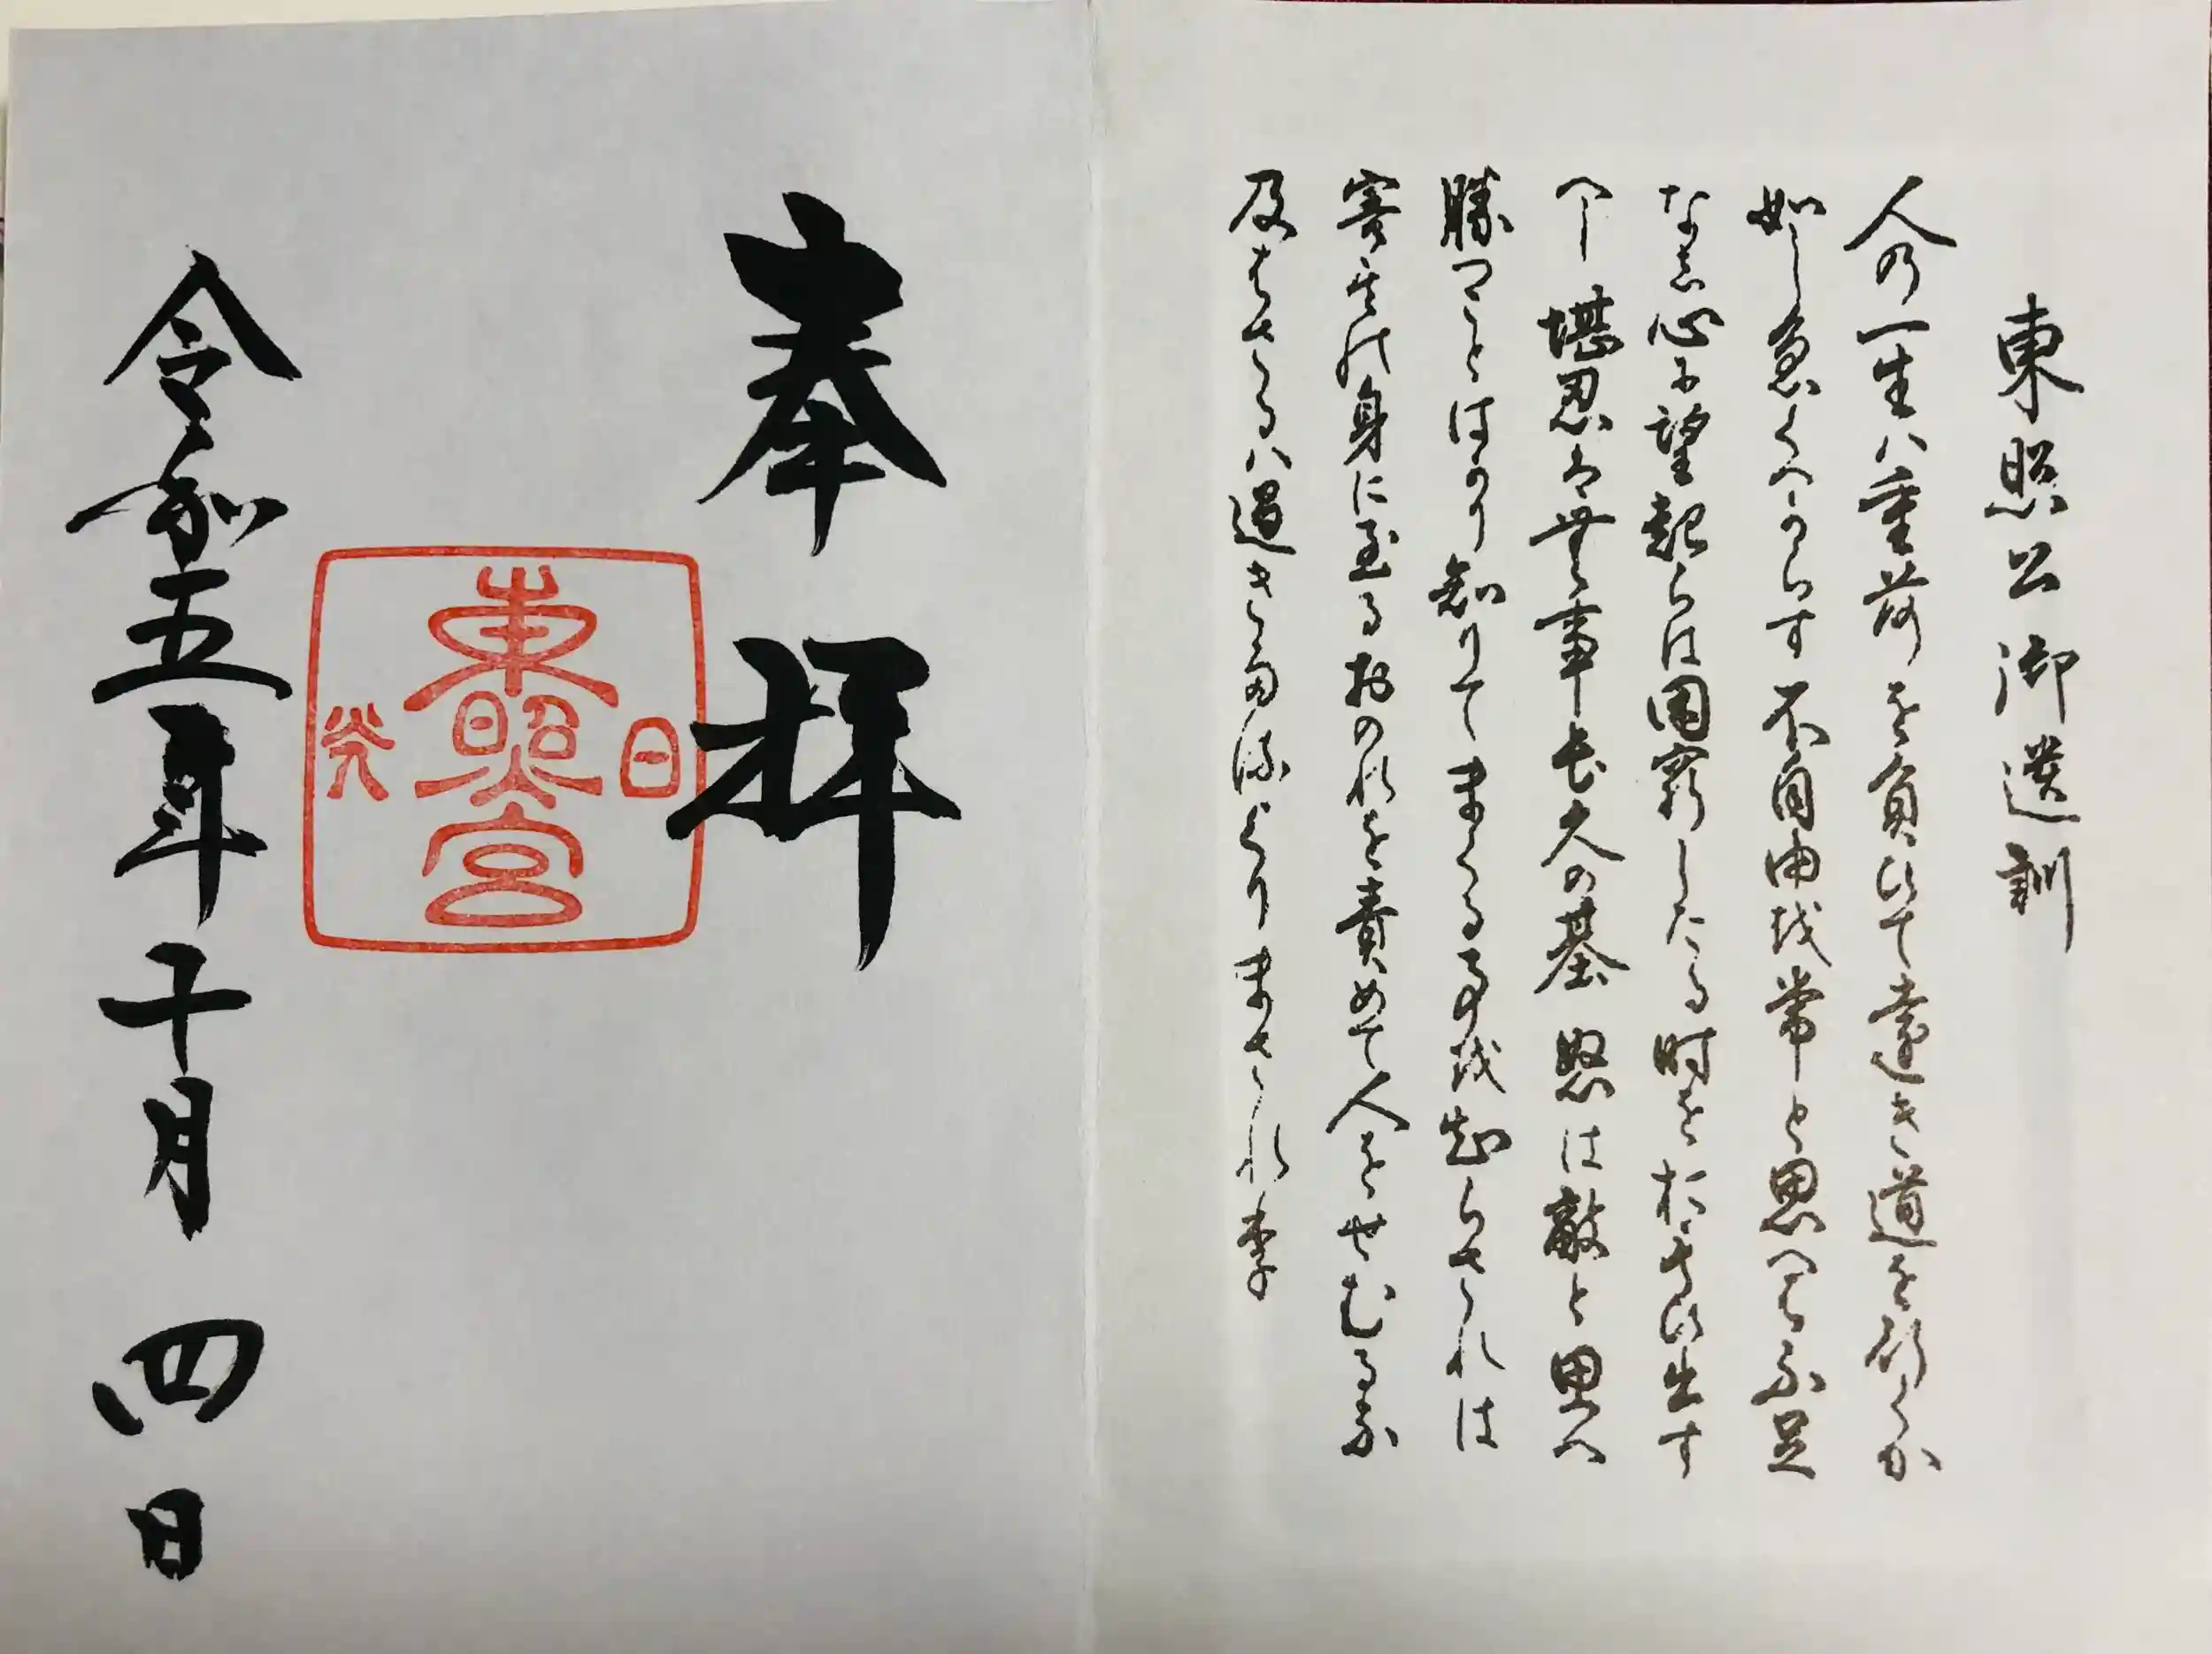 東照公御遺訓
人の一生ハ重荷を負ひて遠き道を行くか
如し急くへからす不自由を常と思へは不足
なし心に望起らは困窮したる時を思ひ出す
へし堪忍は無事長久の基怒は敵と思へ
勝つことはかり知りてまくる事を知らされは
害其の身に至るおのれを責めて人をせむるな
及はさるハ過きたるよりまされり
奉拝
日光
東照宮
令和五年十月四日